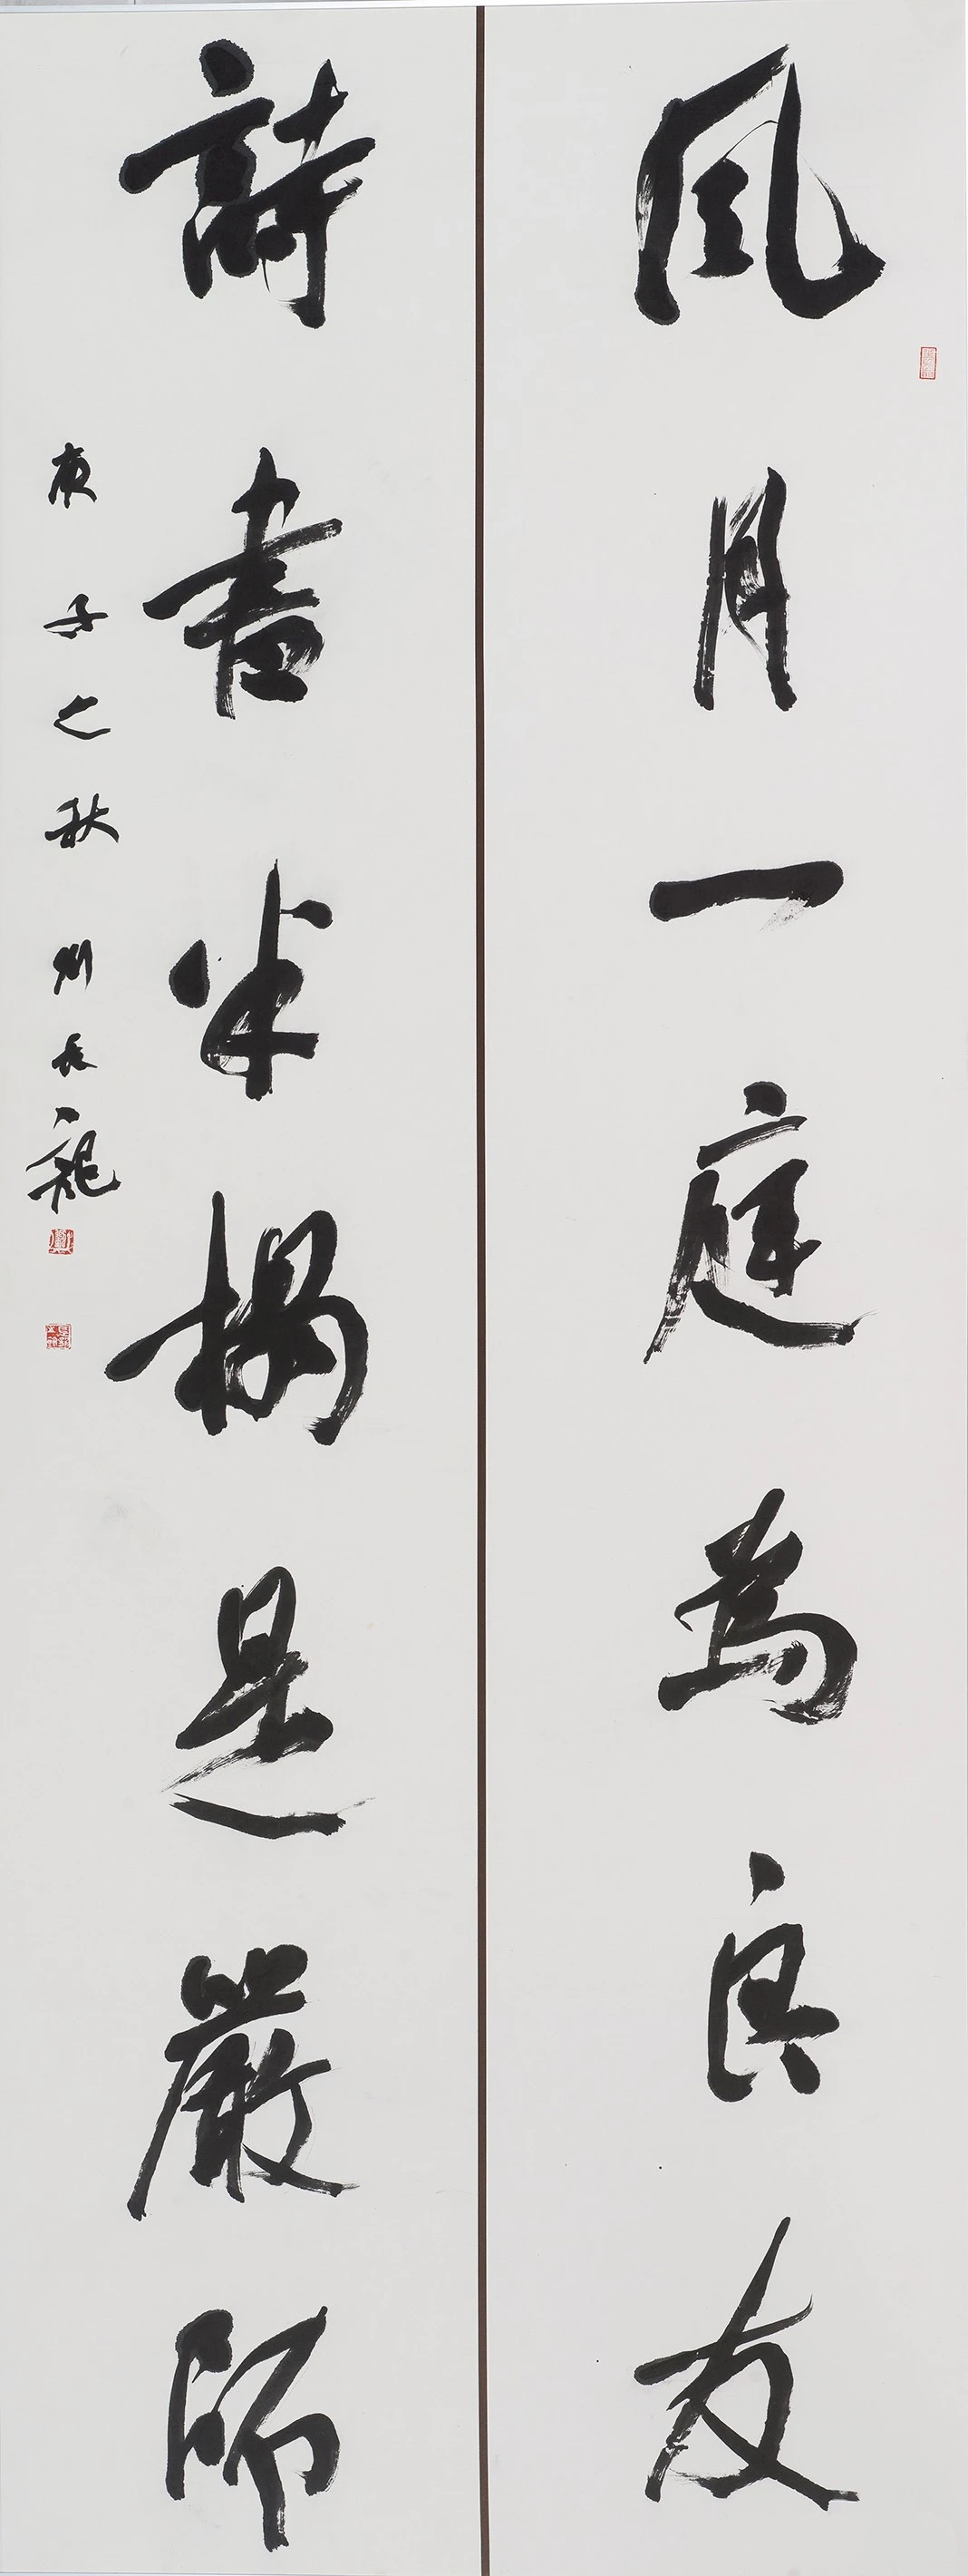 風月一庭為良友
詩書半榻是嚴師
庚子之秋 周長龍